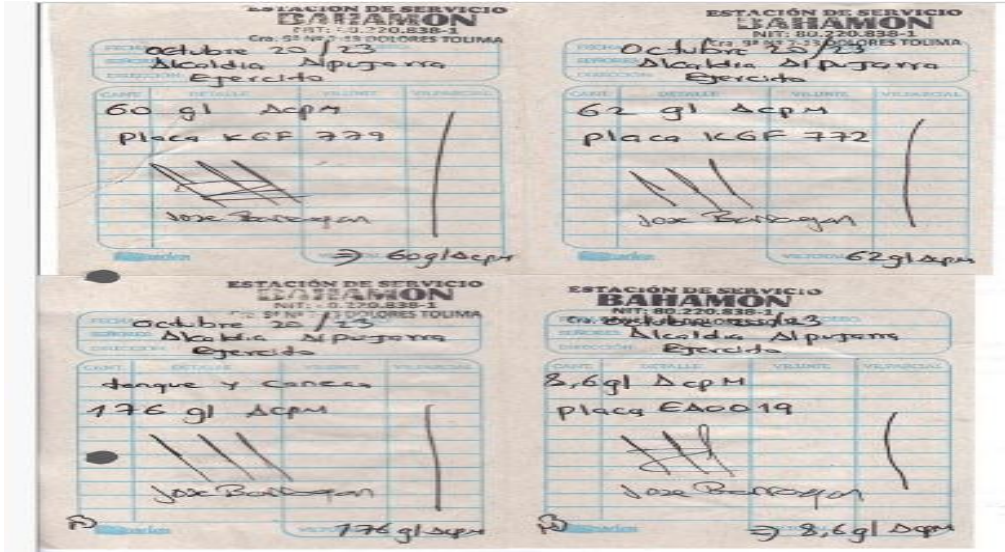 ESTACIÓN DE SERVICIO
BAHAMON
NIT: 80.220.838-1
Cra. 5ª Nº 7-13 DOLORES TOLIMA
Octubre 20/23
Alcaldia Alpujarra
Ejercito
CANT. DETALLE VR.UNIT. VR.PARCIAL
60 gl Acpm
Placa KGF 779
Jose Barragan
→ 60gl Acpm
ESTACIÓN DE SERVICIO
BAHAMON
NIT: 80.220.838-1
DOLORES TOLIMA
Octubre 20/23
Alcaldia Alpujarra
Ejercito
CANT. DETALLE VR.UNIT. VR.PARCIAL
62 gl Acpm
Placa KGF 772
Jose Barragan
62gl Acpm
ESTACIÓN DE SERVICIO
BAHAMON
NIT: 80.220.838-1
DOLORES TOLIMA
Octubre 20/23
Alcaldia Alpujarra
Ejercito
CANT. DETALLE VR.UNIT. VR.PARCIAL
tanque y Caneca
176 gl Acpm
Jose Barragan
176 gl Acpm
ESTACIÓN DE SERVICIO
BAHAMON
NIT: 80.220.838-1
Alcaldia Alpujarra
Ejercito
CANT. DETALLE VR.UNIT. VR.PARCIAL
8,6gl Acpm
Placa EAOO19
Jose Barragan
→ 8,6gl Acpm